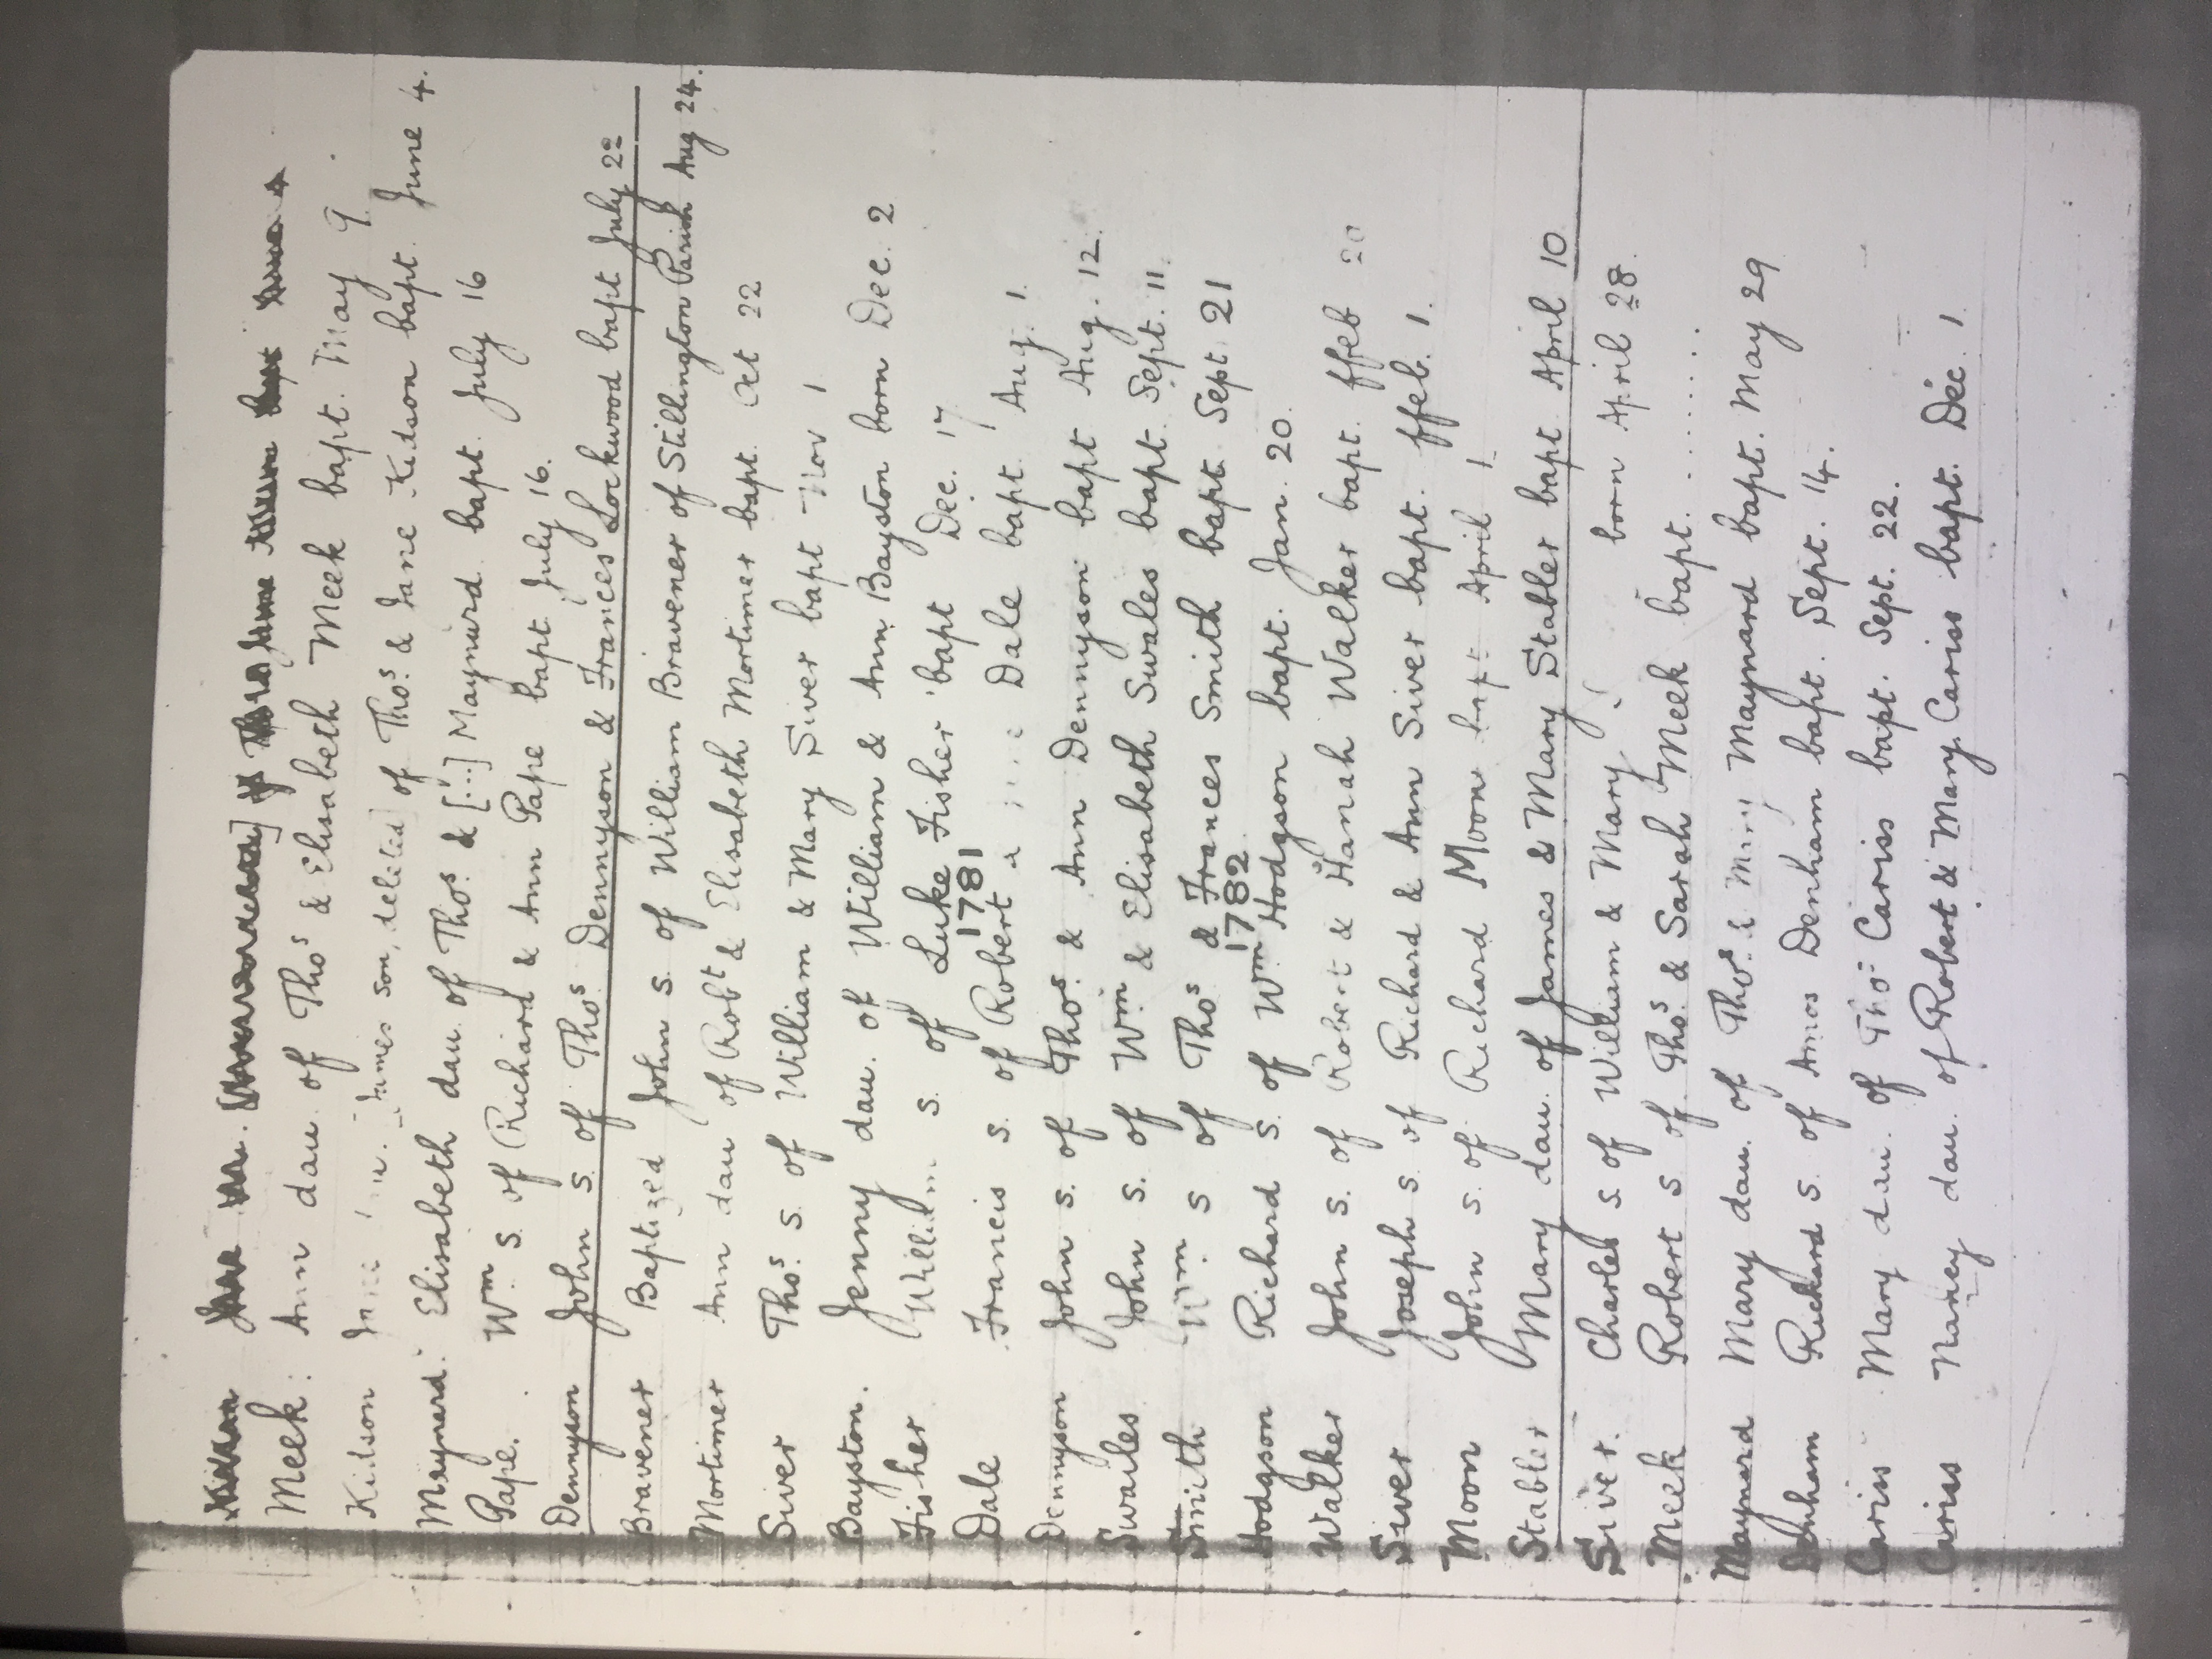 Meek: Ann dau. of Thos & Elisabeth Meek bapt. May 9.
Kidson James son, deleted] of Thos. & Jane Kidson bapt. June 4.
Maynard. Elisabeth dau. of Thos. & [...] Maynard. bapt. July 16
Pape. Wm s. of Richard & Ann Pape bapt. July 16.
Dennyson John s. of Thos. Dennyson & Frances Lockwood bapt July 22
Bravener Baptized John s. of William Bravener of Stillington Parish Aug 24.
Mortimer Ann dau of Robt & Elisabeth Mortimer bapt. Oct 22
Siver Thos. s. of William & Mary Siver bapt Nov 1
Bayston. Jenny dau. of William & Ann Bayston born Dec. 2
Fisher s. of Luke Fisher bapt Dec. 17
1781
Dale Francis s. of Robert Dale bapt. Aug. 1.
Dennyson John s. of Thos. & Ann Dennyson bapt Aug. 12.
Swailes John s. of Wm & Elisabeth Swales bapt. Sept. 11.
Smith Wm. s of Thos & Frances Smith bapt. Sept. 21
1782
Hodgson Richard s. of Wm Hodgson bapt. Jan. 20.
Walker John s. of Robert & Hanah Walker bapt. ffeb 20
Siver Joseph s. of Richard & Ann Siver bapt. ffeb. 1.
Moon John s. of Richard Moon bapt April 1
Stabler Mary dau. of James & Mary Stabler bapt. April 10.
Siver. Charles s. of William & Mary born April 28.
Meek Robert s of Thos. & Sarah Meek bapt. ........
Maynard Mary dau. of Thos. & Mary Maynard bapt. May 29
Denham Richard s. of Amos Denham bapt. Sept. 14.
Cariss Mary dau. of Thos Cariss bapt. Sept. 22.
Cariss Nancy dau. of Robert & Mary Cariss bapt. Dec. 1